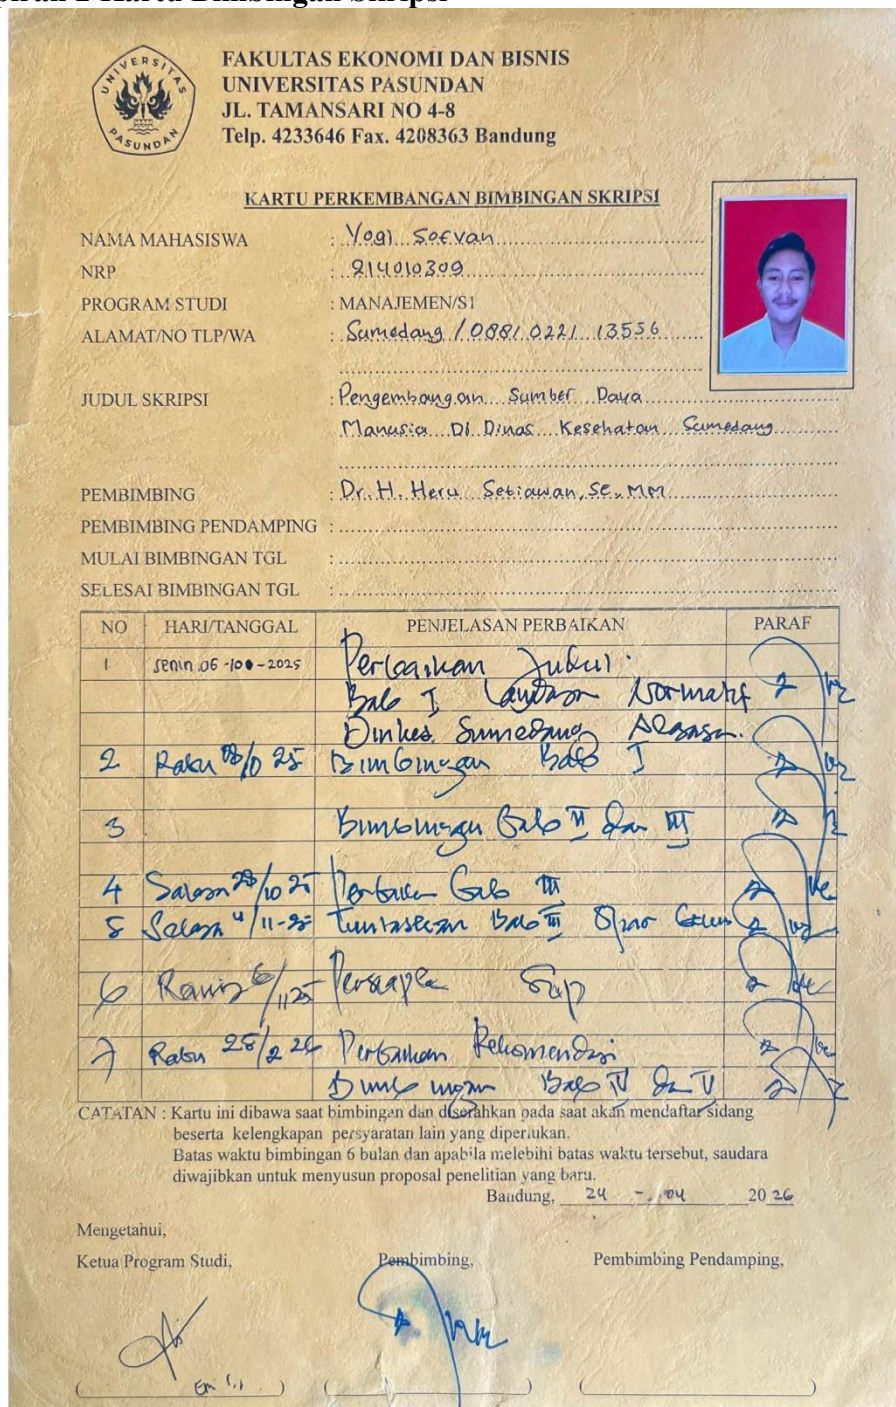 Kartu Bimbingan Skripsi
UNIVERSITAS PASUNDAN
FAKULTAS EKONOMI DAN BISNIS
UNIVERSITAS PASUNDAN
JL. TAMANSARI NO 4-8
Telp. 4233646 Fax. 4208363 Bandung
KARTU PERKEMBANGAN BIMBINGAN SKRIPSI
NAMA MAHASISWA : Yogi Sofyan
NRP : 214010309
PROGRAM STUDI : MANAJEMEN/S1
ALAMAT/NO TLP/WA : Sumedang / 0881 0221 13556
JUDUL SKRIPSI : Pengembangan Sumber Daya
Manusia Di Dinas Kesehatan Sumedang
PEMBIMBING : Dr. H. Heru Setiawan, SE, MM
PEMBIMBING PENDAMPING :
MULAI BIMBINGAN TGL :
SELESAI BIMBINGAN TGL :
NO HARI/TANGGAL PENJELASAN PERBAIKAN PARAF
1 Senin 06 -10 -2025 Perbaikan Judul
Bab I Landasan Normatif
Dinkes Sumedang
2 Rabu 08/10 25 Bimbingan Bab I
3 Bimbingan Bab II dan III
4 Selasa 28/10 25 Perbaikan Bab III
5 Selasa 4/11-25 Bab III
6 Kamis 6/11 25 Persiapan Sup
7 Rabu 25/2 26 Perbaikan Rekomendasi
Bimbingan Bab IV dan V
CATATAN : Kartu ini dibawa saat bimbingan dan diserahkan pada saat akan mendaftar sidang
beserta kelengkapan persyaratan lain yang diperlukan.
Batas waktu bimbingan 6 bulan dan apabila melebihi batas waktu tersebut, saudara
diwajibkan untuk menyusun proposal penelitian yang baru.
Bandung, 24 - 04 2026
Mengetahui,
Ketua Program Studi, Pembimbing, Pembimbing Pendamping,